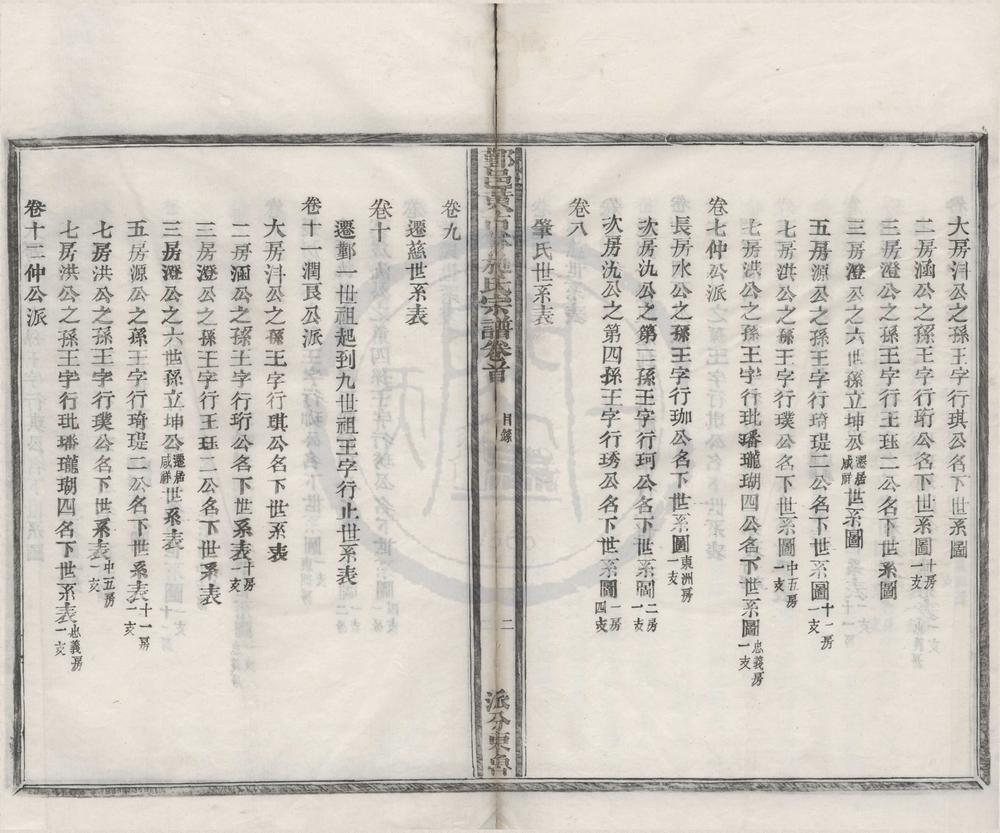 大房汻公之孫王字行琪公名下世系圖
二房涵公之孫王字行珩公名下世系圖十房一支
三房澄公之孫王字行王珏二公名下世系圖
三房澄公之六世孫立坤公遷居咸祥世系圖
五房源公之孫王字行琦瑅二公名下世系圖十一房一支
七房洪公之孫王字行璞公名下世系圖中五房一支
七房洪公之孫王字行玭璠瓏瑚四公名下世系圖忠義房一支
卷七仲公派
長房水公之孫王字行珈公名下世系圖東洲房一支
次房氿公之第二孫王字行珂公名下世系圖二房一支
次房氿公之第四孫王字行琇公名下世系圖一房四支
卷八
肇氏世系表
宗譜卷首
目錄
二
派分東魯
卷九
遷慈世系表
遷鄞一世祖起到九世祖王字行止世系表
卷十
卷十一潤長公派
大房汻公之孫王字行琪公名下世系表
二房涵公之孫王字行珩公名下世系表十房一支
三房澄公之孫王字行王珏二公名下世系表
三房澄公之六世孫立坤公遷居咸祥世系表
五房源公之孫王字行琦瑅二公名下世系表十一房一支
七房洪公之孫王字行璞公名下世系表中五房一支
七房洪公之孫王字行玭璠瓏瑚四名下世系表忠義房一支
卷十二仲公派